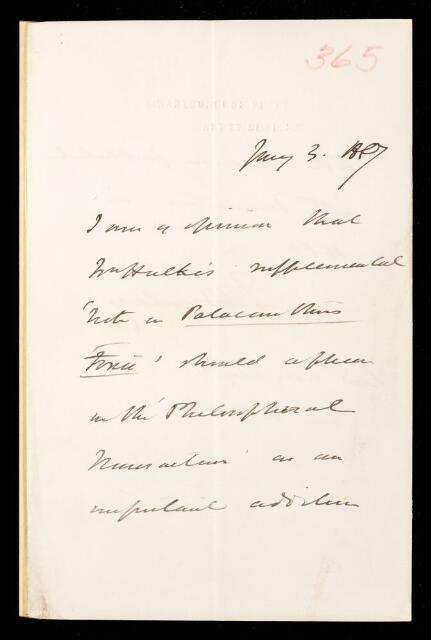 365
Jany 3. 1887
I am of opinion that
Mr Hulke's supplemental
'Note on Polacanthus
Foxii' should appear
in the 'Philosophical
Transactions' as an
important addition